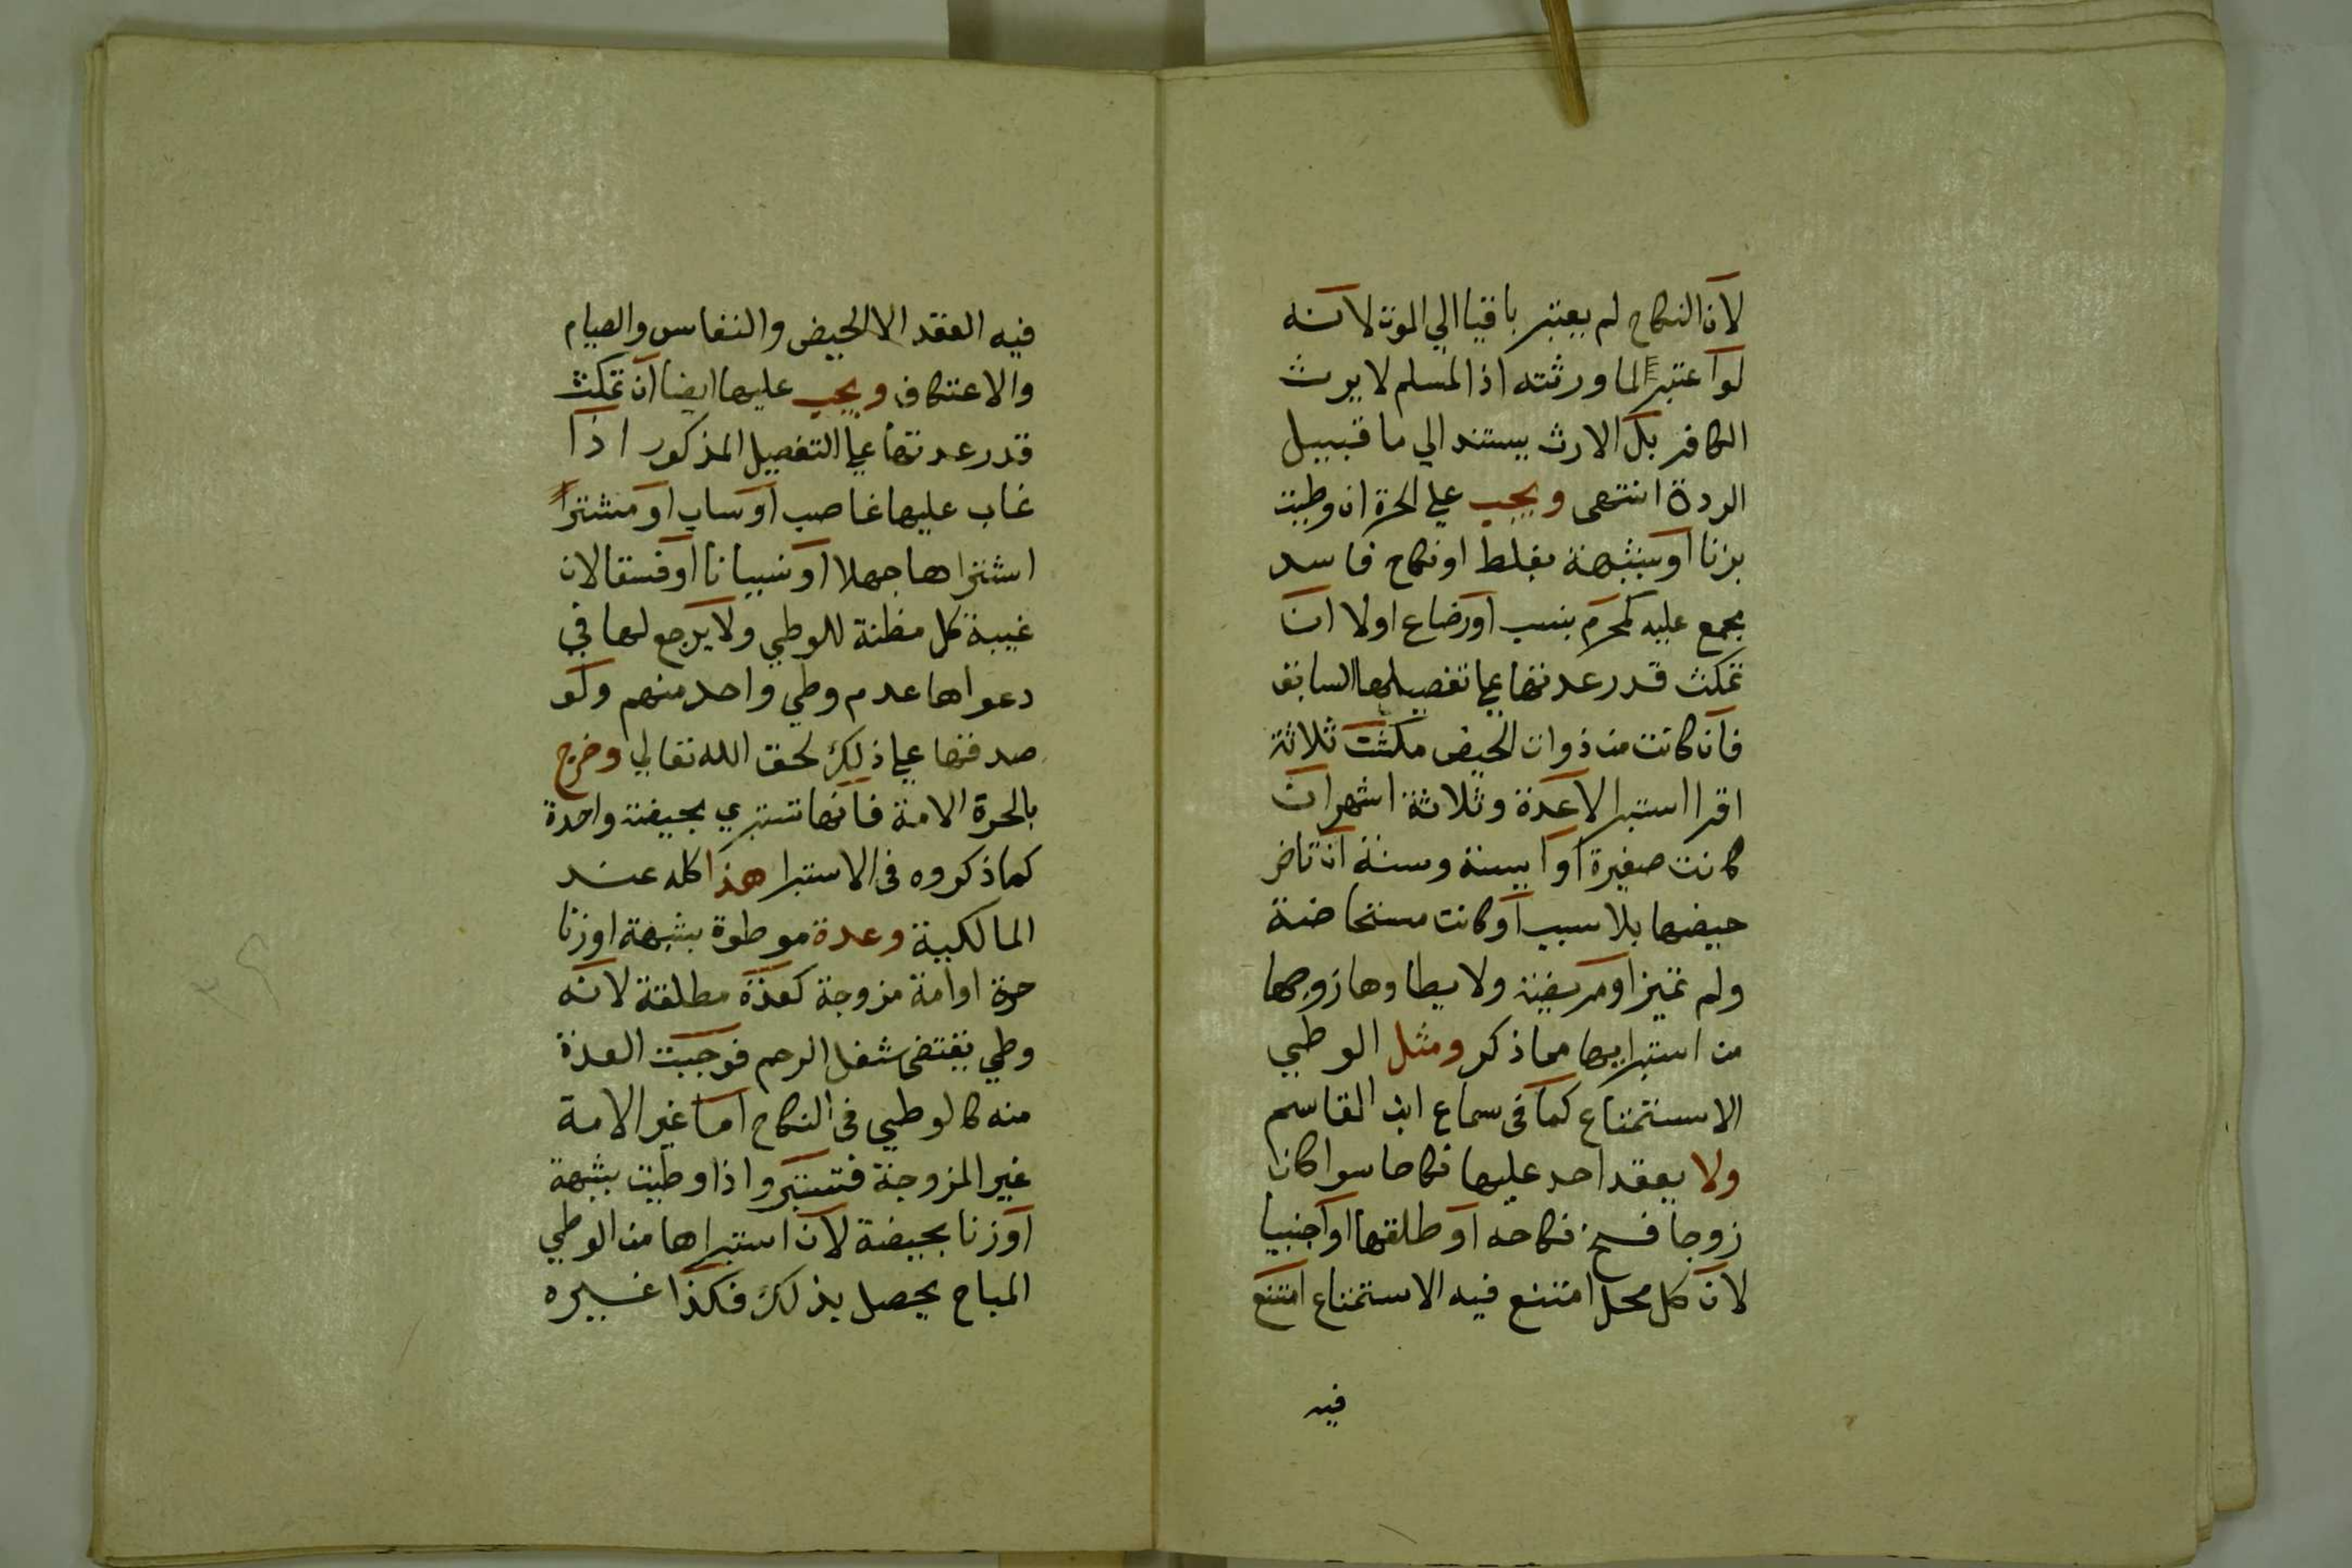 لان النكاح لم يعتبر باقيا الي الموت لانه
لو اعتبر لما ورثته اذ المسلم لا يرث
الكافر بل الارث يستند الي ما قبيل
الردة انتهى ويجب علي الحرة ان وطيت
بزنا او بشبهة بغلط او نكاح فاسد
مجمع عليه كمحرم بنسب او رضاع اولا ان
تمكث قدر عدتها علي تفصيلها السابق
فان كانت من ذوات الحيض مكثت ثلاثة
اقرا استبرا لا عدة وثلاثة اشهر ان
كانت صغيرة او ايسة وسنة ان تاخر
حيضها بلا سبب او كانت مستحاضة
ولم تميز او مريضة ولا يطاوها زوجها
من استبرايها مما ذكر ومثل الوطي
الاستمتاع كما في سماع ابن القاسم
ولا يعقد احد عليها نكاحا سوا كان
زوجا فسخ نكاحه او طلقها او اجنبيا
لان كل محل امتنع فيه الاستمتاع امتنع
فيه
فيه العقد الا الحيض والنفاس والصيام
والاعتكاف ويجب عليها ايضا ان تمكث
قدر عدتها علي التفصيل المذكور اذا
غاب عليها غاصب او ساب او مشتر
اشتراها جهلا او نسيانا او فسقا لان
غيبة كل مظنة للوطي ولا يرجع لها في
دعواها عدم وطي واحد منهم ولو
صدقها علي ذلك لحق الله تعالي وخرج
بالحرة الامة فانها تستبري بحيضة واحدة
كما ذكروه في الاستبرا هذا كله عند
المالكية وعدة موطوة بشبهة او زنا
حرة او امة مزوجة كعدة مطلقة لانه
وطي يقتضي شغل الرحم فوجبت العدة
منه كالوطي في النكاح اما غير الامة
غير المزوجة فتستبرو اذا وطيت بشبهة
او زنا بحيضة لان استبراها من الوطي
المباح يحصل بذلك فكذا غيره